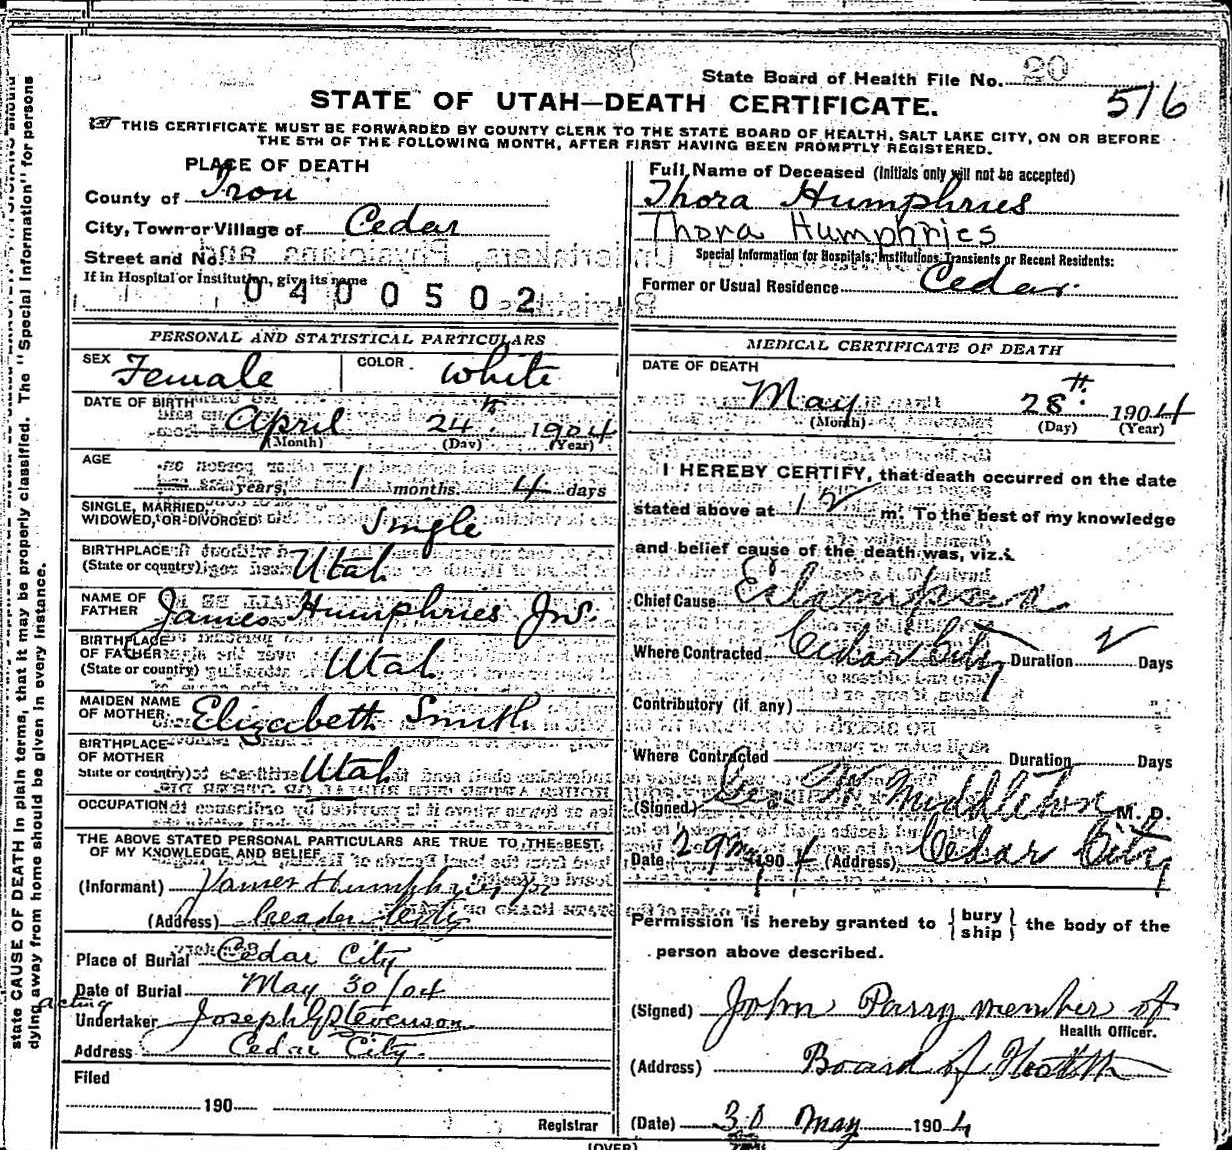 State Board of Health File No. 20
516
STATE OF UTAH—DEATH CERTIFICATE.
THIS CERTIFICATE MUST BE FORWARDED BY COUNTY CLERK TO THE STATE BOARD OF HEALTH, SALT LAKE CITY, ON OR BEFORE
THE 5TH OF THE FOLLOWING MONTH, AFTER FIRST HAVING BEEN PROMPTLY REGISTERED.
PLACE OF DEATH
County of Iron
City, Town or Village of Cedar
Street and No.
If in Hospital or Institution, give its name
0400502
Full Name of Deceased (Initials only will not be accepted)
Thora Humphries
Thora Humphries
Special Information for Hospitals, Institutions, Transients or Recent Residents:
Former or Usual Residence Cedar.
PERSONAL AND STATISTICAL PARTICULARS
SEX Female COLOR White
DATE OF BIRTH April 24th. 1904
(Month) (Day) (Year)
AGE
years, 1 months. 4 days
SINGLE, MARRIED,
WIDOWED, OR DIVORCED Single
BIRTHPLACE
(State or country) Utah
NAME OF
FATHER James Humphries Jnr.
BIRTHPLACE
OF FATHER
(State or country) Utah
MAIDEN NAME
OF MOTHER Elizabeth Smith
BIRTHPLACE
OF MOTHER
State or country) Utah
OCCUPATION
THE ABOVE STATED PERSONAL PARTICULARS ARE TRUE TO THE BEST
OF MY KNOWLEDGE AND BELIEF
(Informant) James Humphries jr
(Address) Ceader City
Place of Burial Cedar City
Date of Burial May 30/04
acting
Undertaker Joseph G Stevenson
Address Cedar City.
Filed
190
Registrar
MEDICAL CERTIFICATE OF DEATH
DATE OF DEATH
May 28th. 1904
(Month) (Day) (Year)
I HEREBY CERTIFY, that death occurred on the date
stated above at 12 m. To the best of my knowledge
and belief cause of the death was, viz.:
Chief Cause
Where Contracted Cedar City Duration 2 Days
Contributory (if any)
Where Contracted Duration Days
(Signed) Geo. W. Middleton M. D.
Date 29 My 1904 (Address) Cedar City
Permission is hereby granted to {bury
ship} the body of the
person above described.
(Signed) John Parry member of
Health Officer.
(Address) Board of Health
(Date) 30 May 1904
(OVER)
state CAUSE OF DEATH in plain terms, that it may be properly classified. The "Special Information" for persons
dying away from home should be given in every instance.